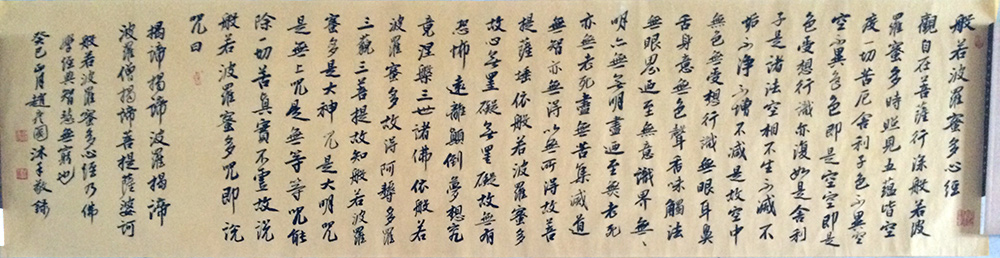 般若波羅蜜多心經
觀自在菩薩行深般若波
羅蜜多時照見五蘊皆空
度一切苦厄舍利子色不異空
空不異色色即是空空即是
色受想行識亦復如是舍利
子是諸法空相不生不滅不
垢不淨不增不減是故空中
無色無受想行識無眼耳鼻
舌身意無色聲香味觸法
無眼界迺至無意識界無
明亦無無明盡迺至無老死
亦無老死盡無苦集滅道
無智亦無得以無所得故菩
提薩埵依般若波羅蜜多
故心無罣礙無罣礙故無有
恐怖遠離顛倒夢想究
竟涅槃三世諸佛依般若
波羅蜜多故得阿耨多羅
三藐三菩提故知般若波羅
蜜多是大神咒是大明咒
是無上咒是無等等咒能
除一切苦真實不虛故說
般若波羅蜜多咒即說
咒曰
揭諦揭諦波羅揭諦
波羅僧揭諦菩提薩婆訶
般若波羅蜜多心經乃佛
學經典智慧無窮也
癸巳 月趙 國沐手敬錄